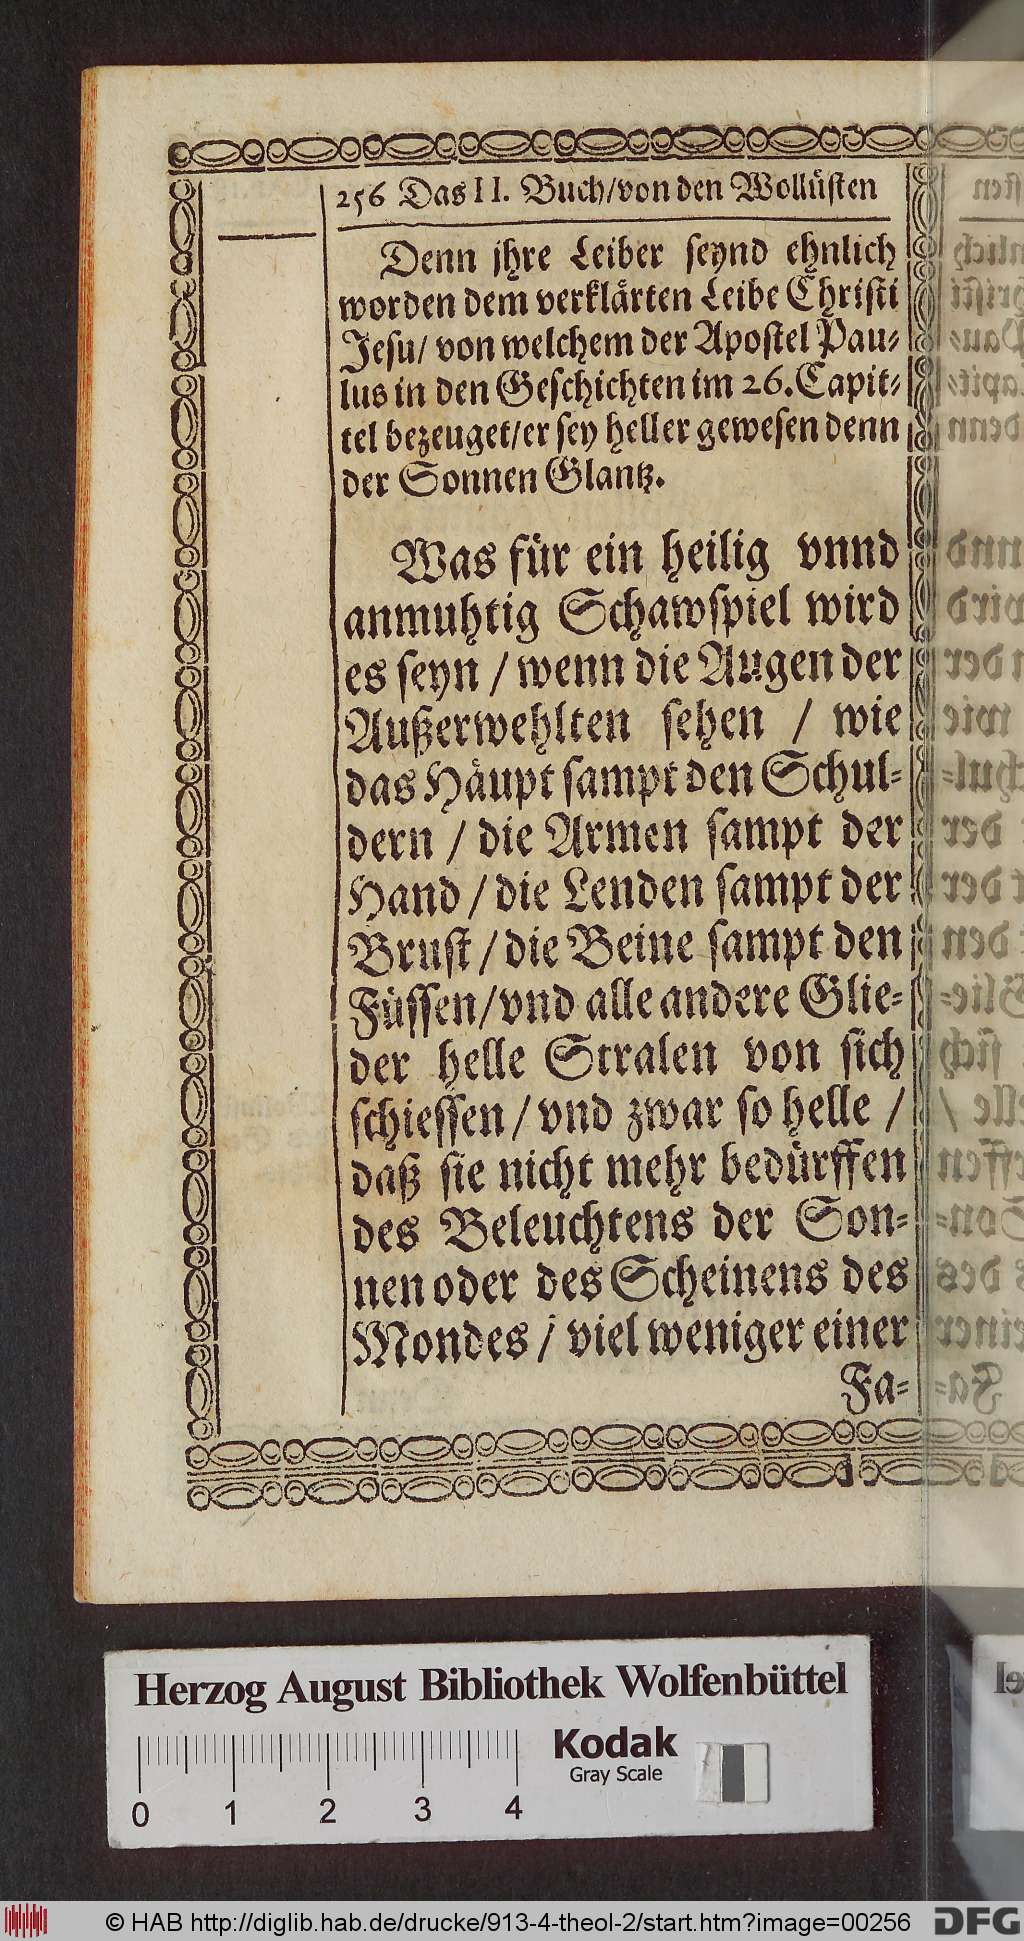 256 Das II. Buch/von den Wollüsten
Denn jhre Leiber seynd ehnlich
worden dem verklärten Leibe Christi
Jesu/ von welchem der Apostel Pau-
lus in den Geschichten im 26. Capit-
tel bezeuget/er sey heller gewesen denn
der Sonnen Glantz.
Was für ein heilig vnnd
anmuhtig Schawspiel wird
es seyn / wenn die Augen der
Außerwehlten sehen / wie
das Häupt sampt den Schul-
dern / die Armen sampt der
Hand / die Lenden sampt der
Brust / die Beine sampt den
Füssen/vnd alle andere Glie-
der helle Stralen von sich
schiessen / vnd zwar so helle /
daß sie nicht mehr bedürffen
des Beleuchtens der Son-
nen oder des Scheinens des
Mondes / viel weniger einer
Fa-
Herzog August Bibliothek Wolfenbüttel
Kodak
Gray Scale
0 1 2 3 4
© HAB http://diglib.hab.de/drucke/913-4-theol-2/start.htm?image=00256
DFG